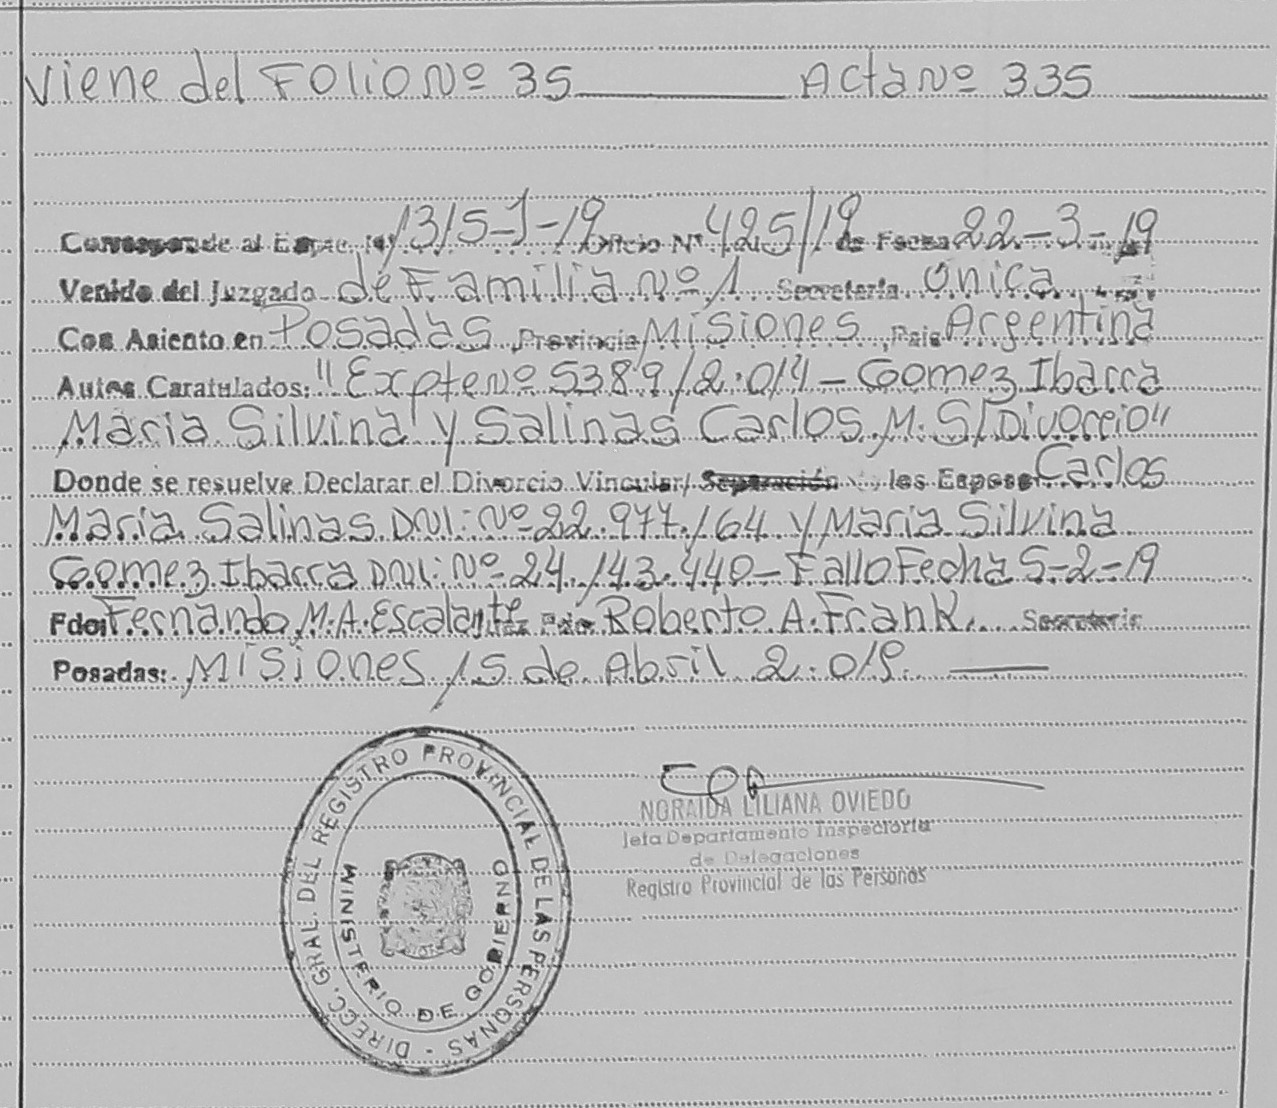 Viene del Folio Nº 35 Acta Nº 335
Corresponde al Expte. Nº 1315-J-19 Oficio Nº 425/19 de Fecha 22-3-19
Venido del Juzgado de Familia Nº 1 Secretaría Única
Con Asiento en Posadas Provincia Misiones País Argentina
Autos Caratulados: "Expte Nº 5389/2.014 - Gomez Ibarra
Maria Silvina y Salinas Carlos M. S/Divorcio"
Donde se resuelve Declarar el Divorcio Vincular/ Separación los Esposos Carlos
María Salinas DNI: Nº 22.977.164 y María Silvina
Gomez Ibarra DNI: Nº 24.143.440 - Fallo Fecha 5-2-19
Fdo: Fernando M.A. Escalante Roberto A. Frank Secretario
Posadas: Misiones 15 de Abril 2.019.
DIRECC. GRAL. DEL REGISTRO PROVINCIAL DE LAS PERSONAS -
MINISTERIO DE GOBIERNO
NORAIDA LILIANA OVIEDO
Jefa Departamento Inspectoría
de Delegaciones
Registro Provincial de las Personas